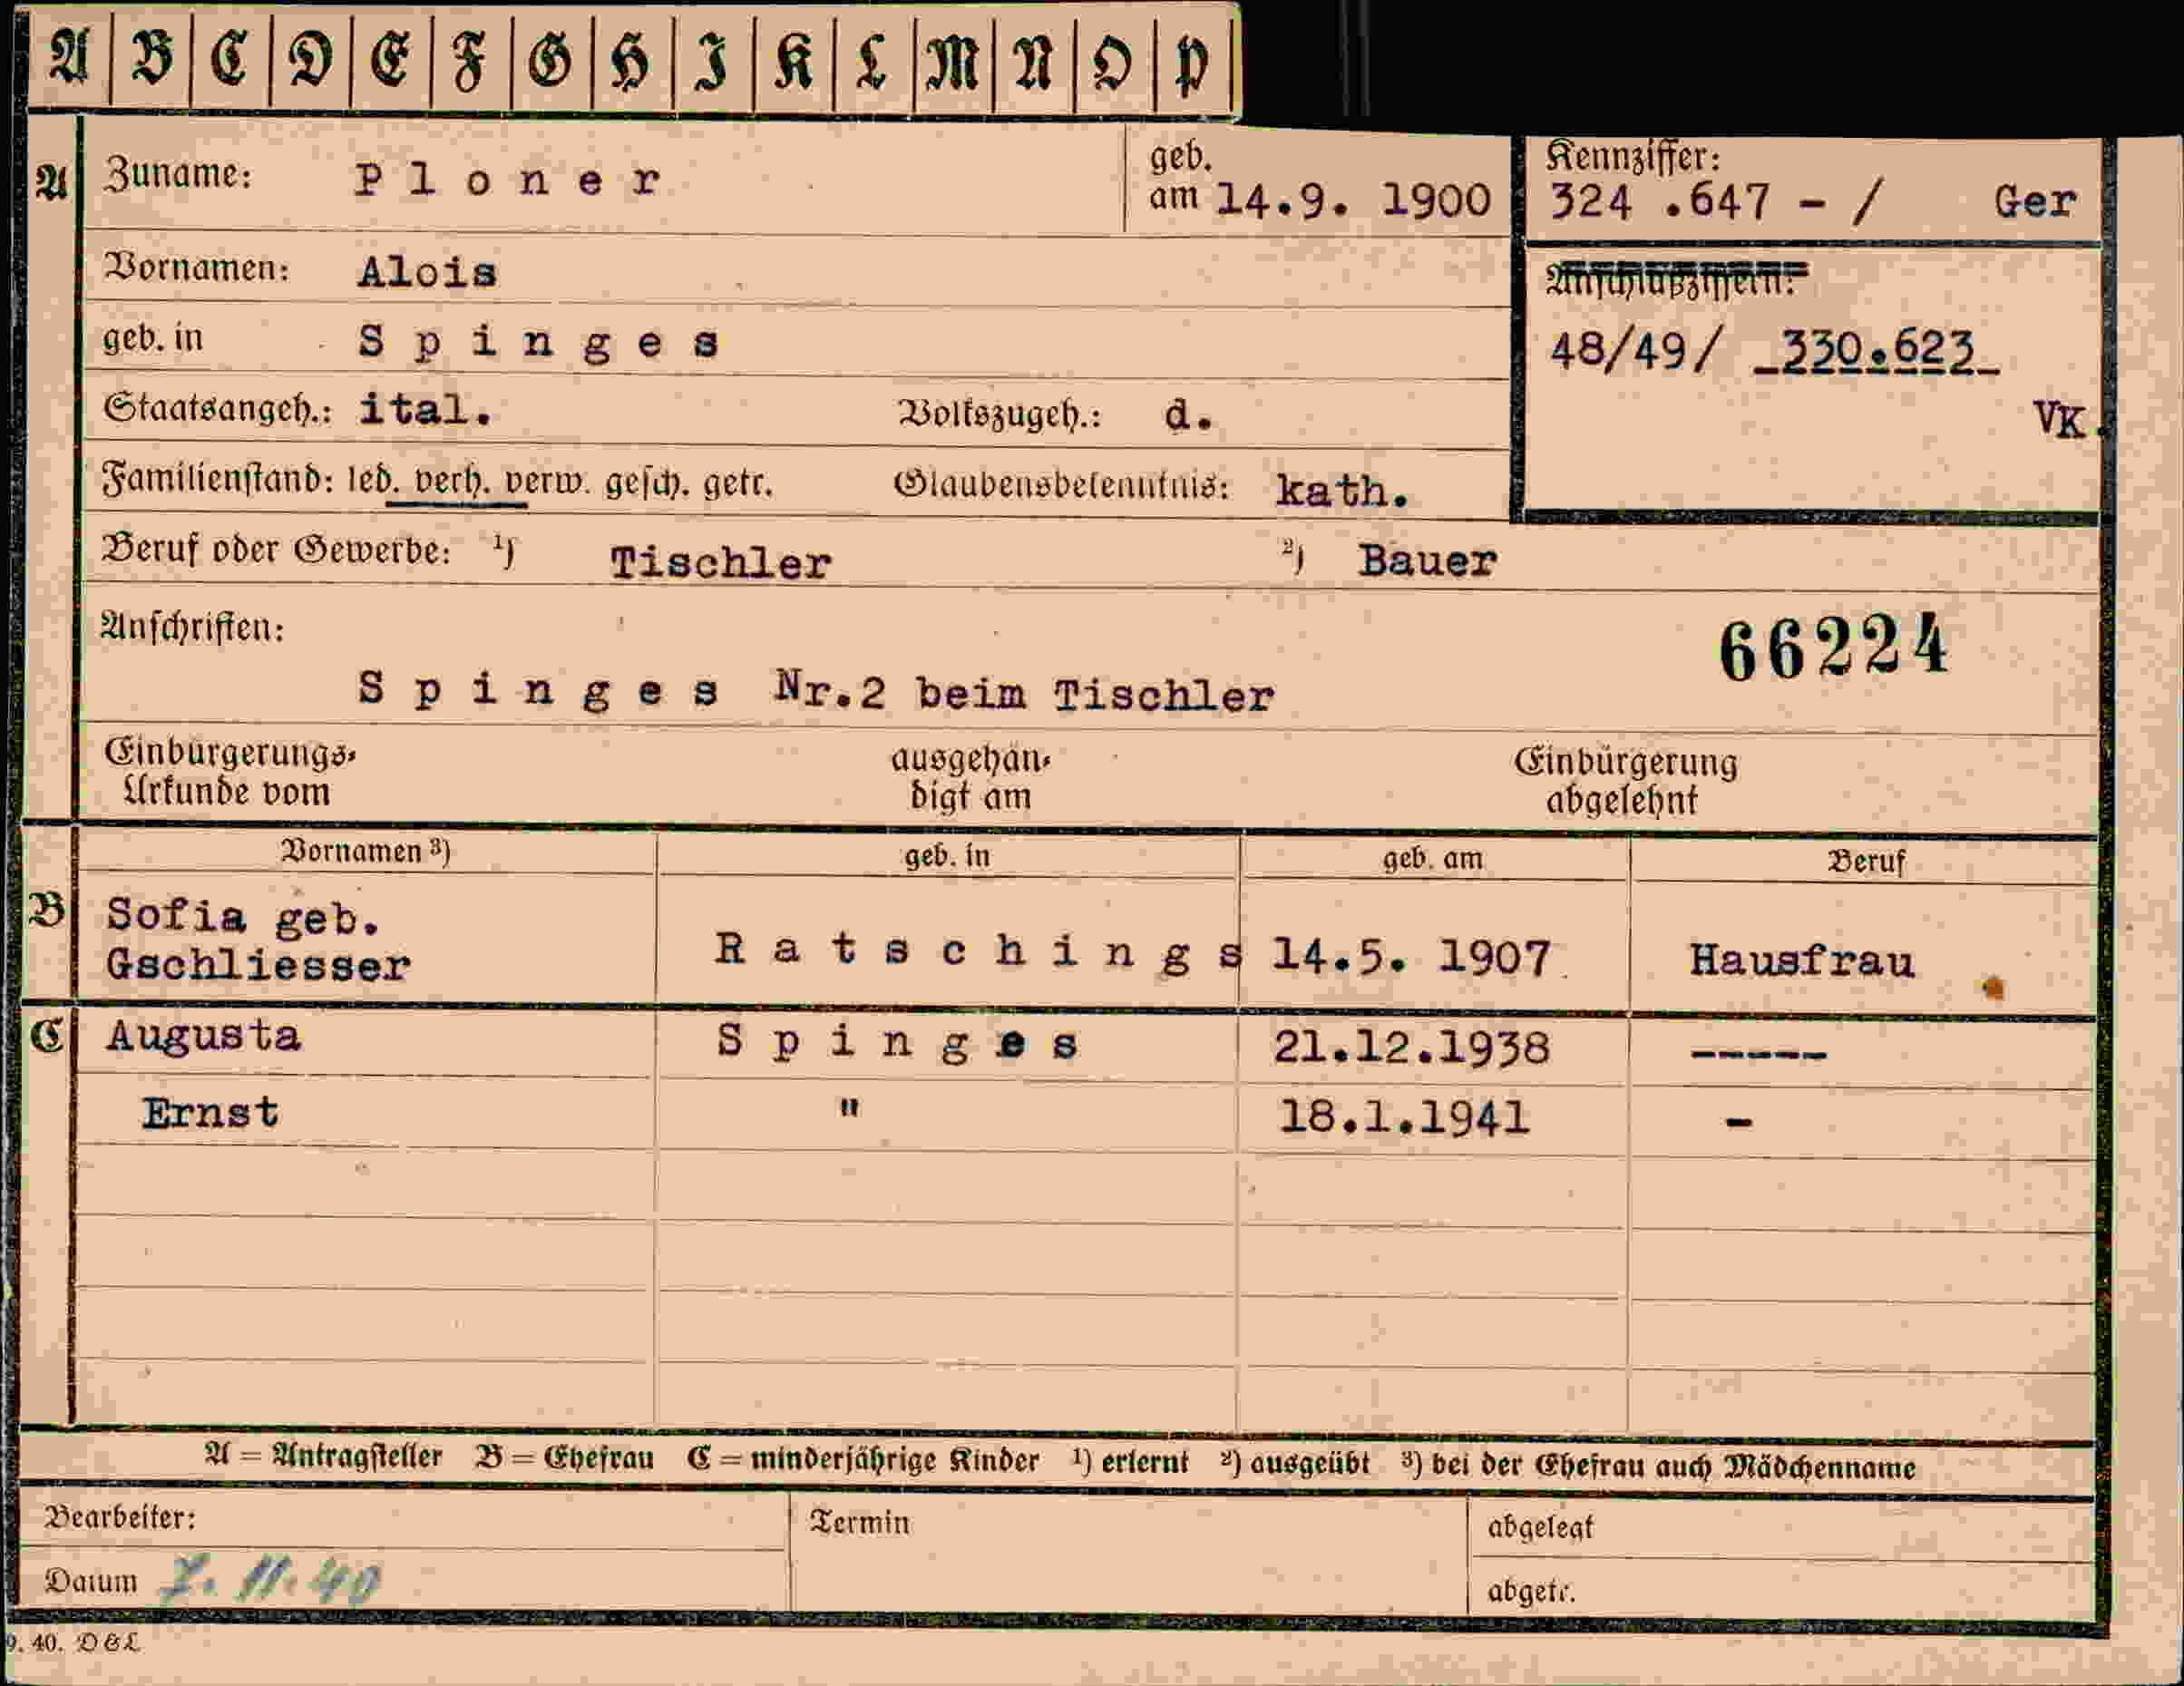 A B C D E F G H I K L M N O P
A Zuname: Ploner geb. am 14.9. 1900 Kennziffer: 324 .647 - / Ger
Vornamen: Alois Anschlußziffern:
geb. in Spinges 48/49/ 330.623
Staatsangeh.: ital. Volkszugeh.: d. VK.
Familienstand: led. verh. verw. gesch. getr. Glaubensbekenntnis: kath.
Beruf oder Gewerbe: 1) Tischler 2) Bauer
Anschriften: 66224
Spinges Nr.2 beim Tischler
Einbürgerungs- ausgehän- Einbürgerung
Urkunde vom digt am abgelehnt
Vornamen 3) geb. in geb. am Beruf
B Sofia geb.
Gschliesser Ratschings 14.5. 1907 Hausfrau
C Augusta Spinges 21.12.1938 -----
Ernst " 18.1.1941 -
A = Antragsteller B = Ehefrau C = minderjährige Kinder 1) erlernt 2) ausgeübt 3) bei der Ehefrau auch Mädchenname
Bearbeiter: Termin abgelegt
Datum 7. 11. 40 abgetr.
9. 40. D&L